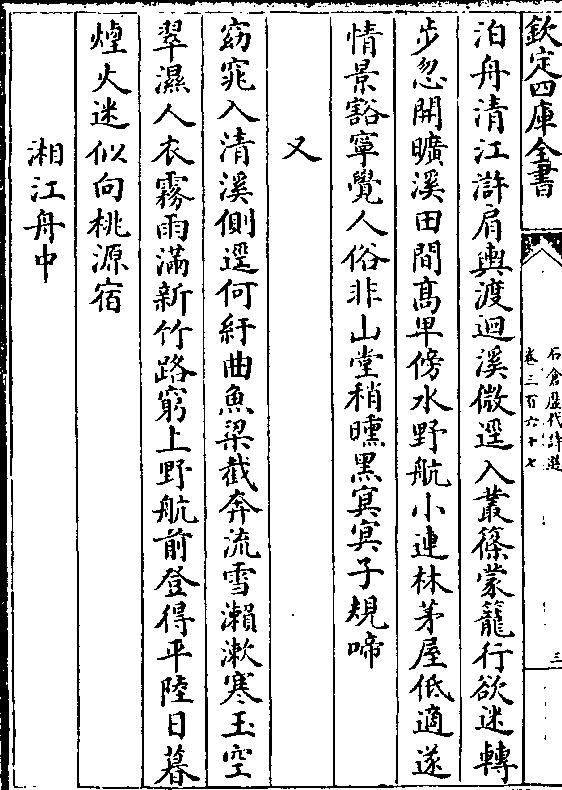 欽定四庫全書
石倉歷代詩選
卷三百六十七
三
泊舟清江滸肩輿渡迴溪微逕入叢篠蒙籠行欲迷轉
步忽開曠溪田間髙卑傍水野航小連林茅屋低適遂
情景豁寜覺人俗非山堂稍曛黑冥冥子規啼
又
窈窕入清溪側逕何紆曲魚梁截奔流雪瀨漱寒玉空
翠濕人衣霧雨滿新竹路窮上野航前登得平陸日暮
煙火迷似向桃源宿
湘江舟中